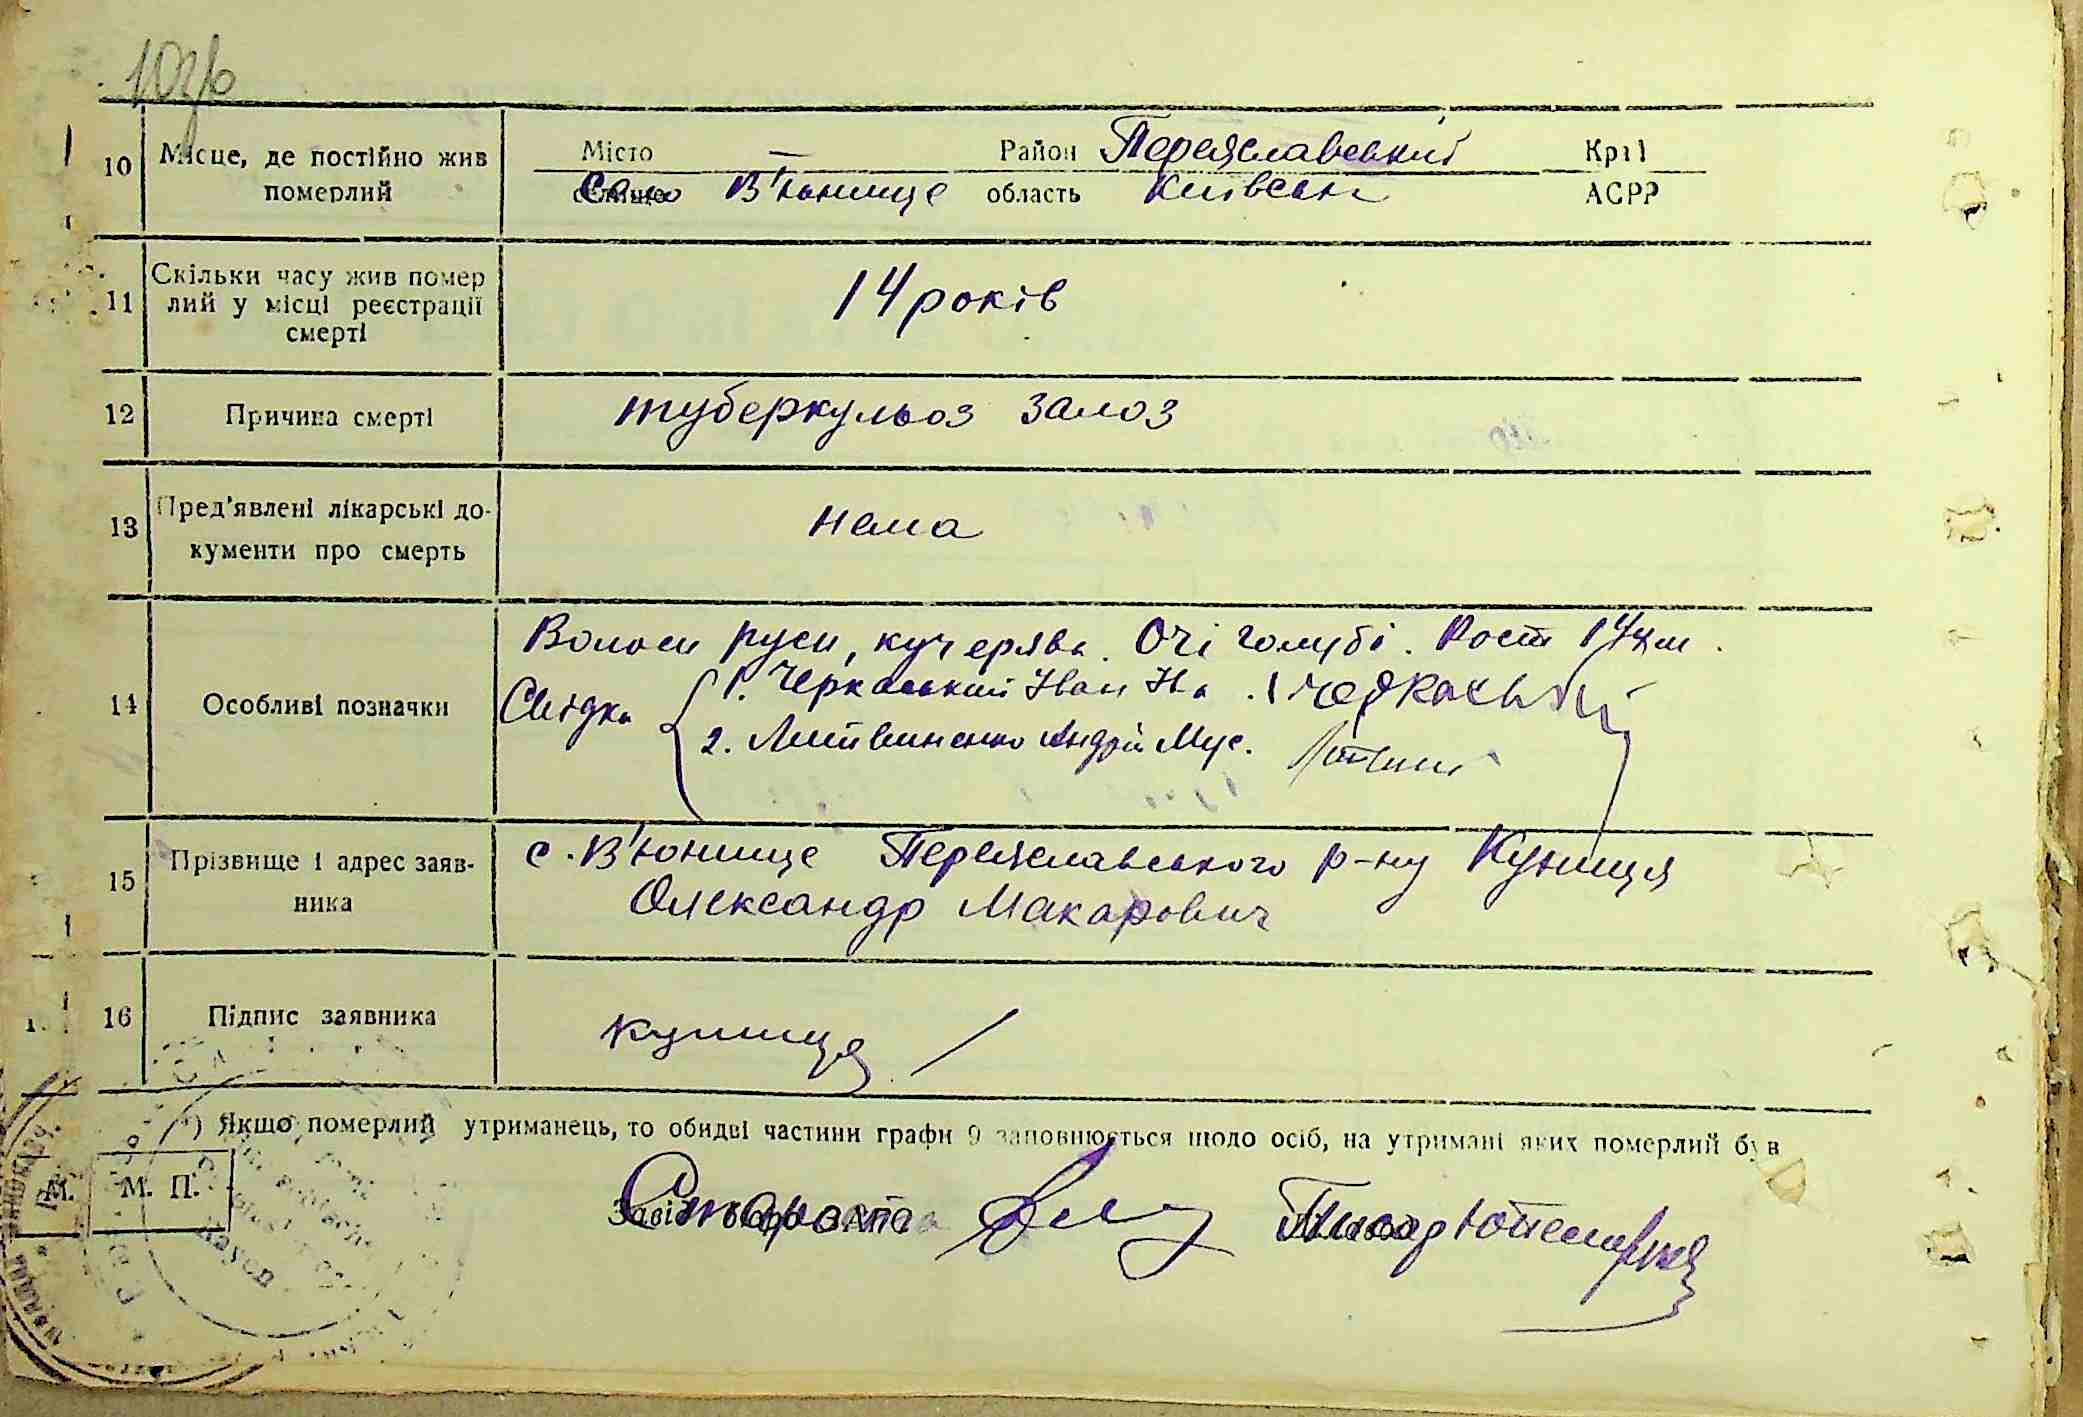 10 Місце, де постійно жив Місто — Район Переяславський Край
померлий Село В'юнище область Київськ АСРР
11 Скільки часу жив помер
лий у місці реєстрації 14 років
смерті
12 Причина смерті туберкульоз залоз
13 Пред'явлені лікарські до-
кументи про смерть нема
14 Особливі позначки Волоси руси, кучеряві. Очі голубі. Рост
Свідки 1. Черкаський Іван Ів. Черкаський
2. Литвиненко Андрій Мус.
15 Прізвище і адрес заяв- с. В'юнище Переяславського р-ну Куниця
ника Олександр Макарович
16 Підпис заявника куниця
) Якщо померлий утриманець, то обидві частини графи 9 заповнюється щодо осіб, на утримані яких померлий був
М. М. П. Староста
Rayon